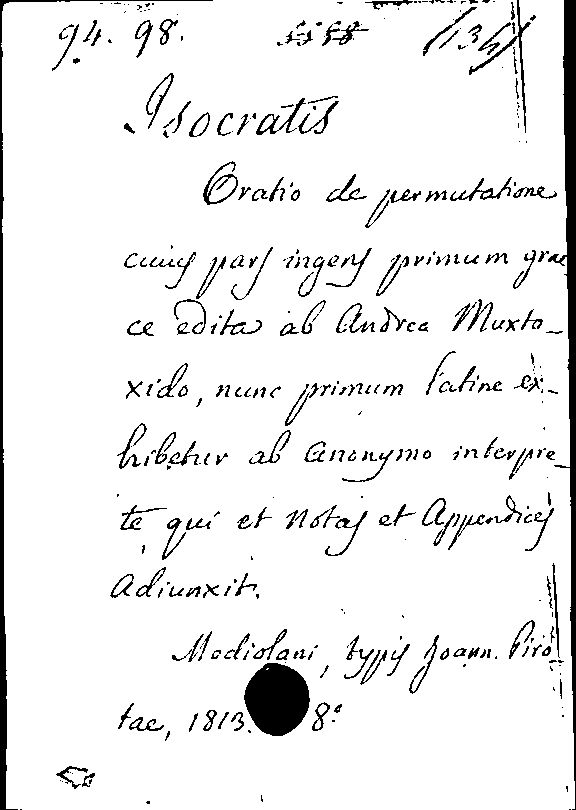 94. 98. 5558 (134)
Isocratis
Oratio de permutatione
cuius pars ingens primum grae
ce edita ab Andrea Muxto-
xido, nunc primum latine ex-
hibetur ab anonymo interpre-
te qui et Notas et Appendices
Adiunxit.
Mediolani, typis Joann. Piro
tae, 1813. 8°